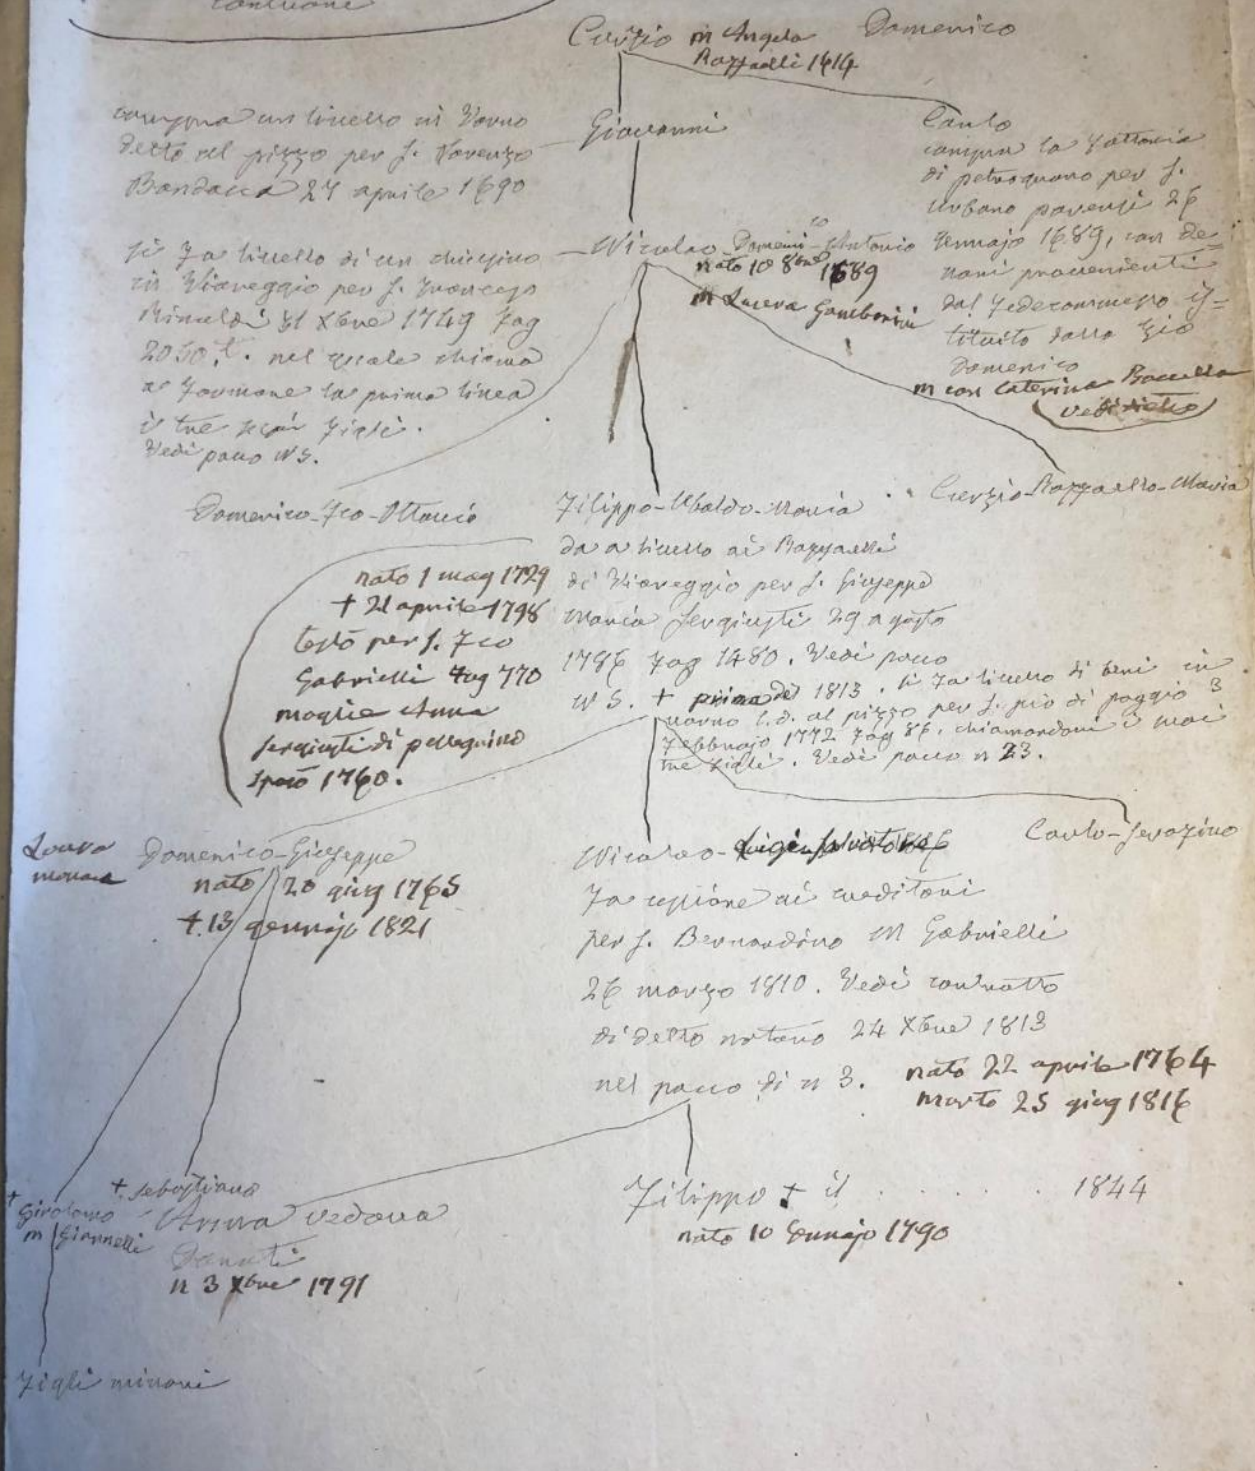 Curzio m Angela Domenico
Raffaelli 1614
compra un livello in Vorno
detto al pizzo per S. Lorenzo
Bandacca 27 aprile 1690
Giovanni
Carlo
compra la fattoria
di petrognano per S.
Urbano parensi 26
Gennajo 1689, con de=
nari provenienti
dal fedecommesso is=
tituito dallo Zio
Domenico
m con Caterina Boccella
vedi dietro
si fa livello di un chiesino
in Viareggio per S. Francesco
Rinaldi 31 Xbre 1749 fog
2050 t. nel quale chiama
a formare la prima linea
i tre suoi figli.
Vedi pacco N 5.
Nicolao Domenico Antonio
nato 10 8bre 1689
m Lucrezia Gamberini
Domenico-Fco-Ottavio
Filippo-Ubaldo-Maria
Curzio-Raffaello-Maria
nato 1 mag 1729
+ 21 aprile 1798
testò per S. Fco
Gabrielli fog 770
moglie Anna
Sergiusti di pellegrino
sposò 1760.
da a livello ai Raffaelli
di Viareggio per S. Giuseppe
Maria Sergiusti 29 agosto
1786 fog 1480. Vedi pacco
N 5. + prima del 1813. si fa livello di beni in
vorno l.d. al pizzo per S. pio di poggio 3
Febbrajo 1772 fog 86, chiamandoci i suoi
tre figli. Vedi pacco n 23.
Laura
monaca
Domenico-Giuseppe
nato 20 giug 1765
+ 13 gennajo 1821
Nicolao-Luigi-Salvatore
Carlo-Serafino
fa cessione ai creditori
per S. Bernardino M Gabrielli
26 marzo 1810. Vedi contratto
di detto notaro 24 Xbre 1813
nel pacco di n 3. nato 22 aprile 1764
morto 25 giug 1816
+ Girolamo
m Giannelli
+ Sebastiano
Anna vedova
Donati
n 3 Xbre 1791
Filippo + il . . . . . 1844
nato 10 Gennajo 1790
Figli minori